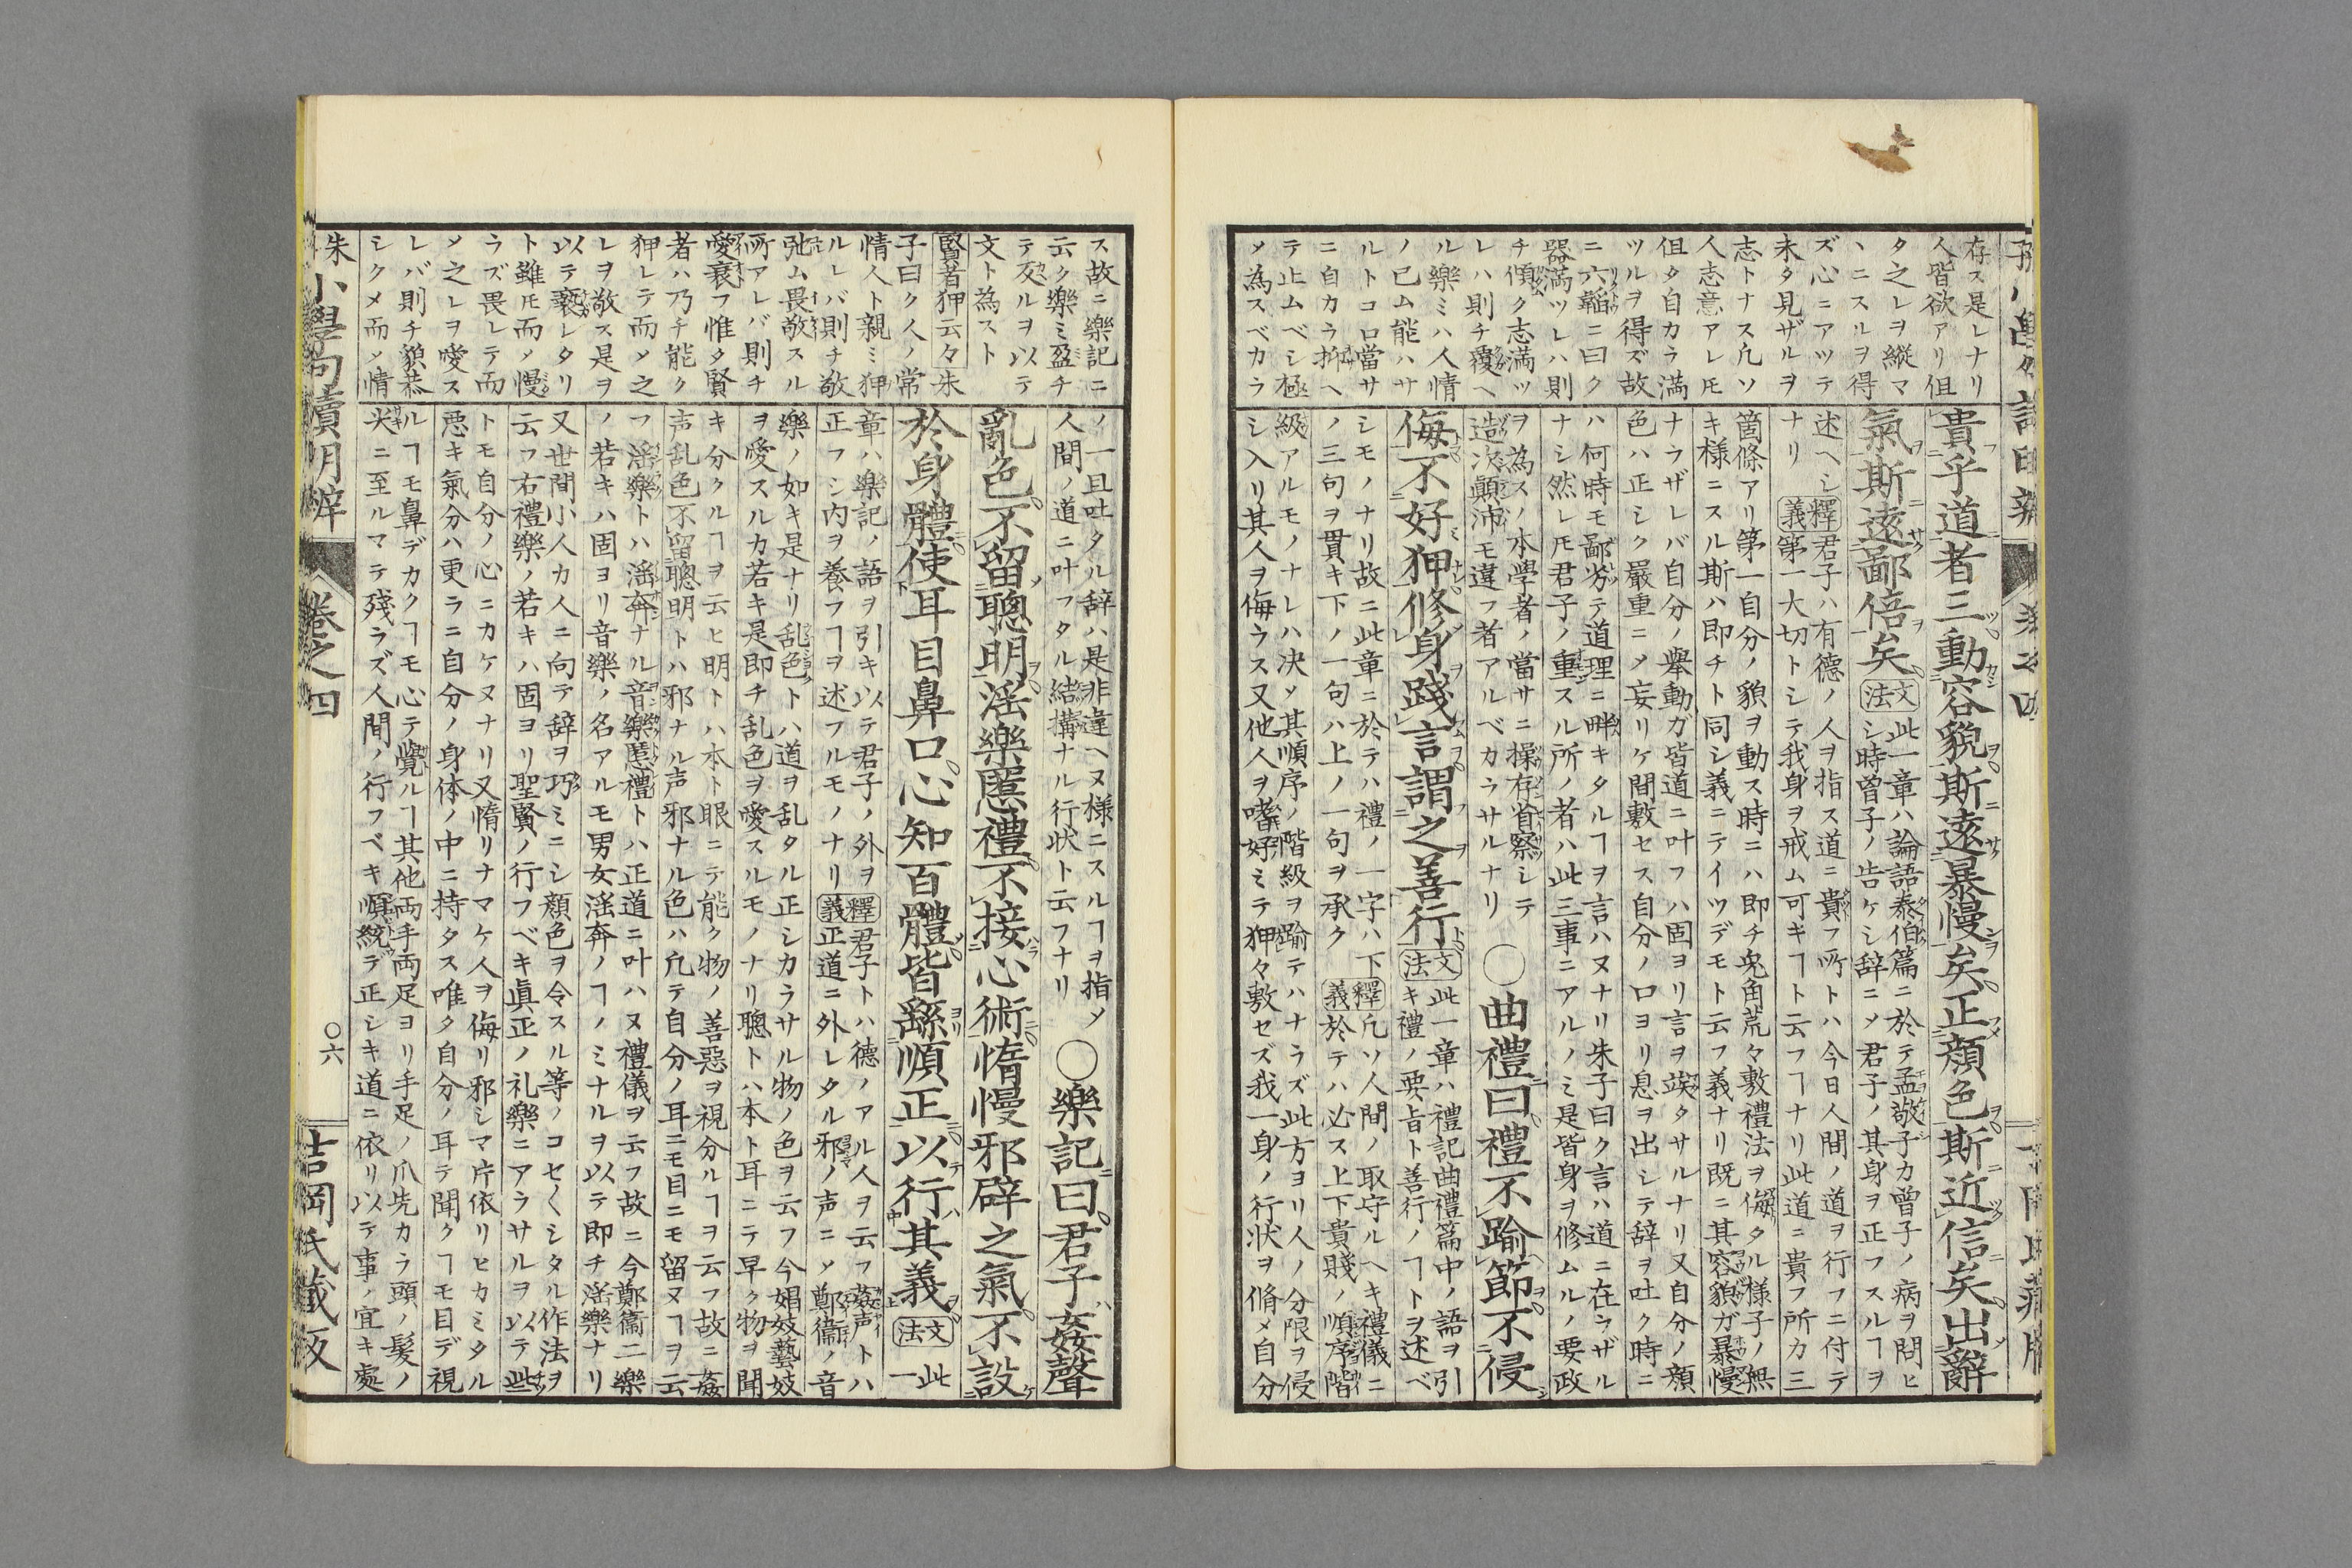 存ス是レナリ
人皆欲アリ伹
タ之レヲ縱マ
ヽニスルヲ得
ズ心ニアツテ
未タ見ザルヲ
志トナス凢ソ
人志意アレ𪜈
伹タ自カラ満
ツルヲ得ズ故
ニ六韜ニ曰ク
器満ツレハ則
チ傾ク志満ツ
レハ則チ覆ヘ
ル樂ミハ人情
ノ已ム能ハサ
ルトコロ當サ
ニ自カラ抑ヘ
テ止ムベシ極
メ為スベカラ
貴乎道者三動容貌斯遠暴慢矣正顔色斯近信矣出辭
氣斯遠鄙倍矣
文法
此一章ハ論語泰伯篇ニ於テ孟敬子カ曾子ノ病ヲ問ヒ
シ時曾子ノ告ケシ辞ニメ君子ノ其身ヲ正フスルヿヲ
述ヘシ
ナリ
釋義
君子ハ有德ノ人ヲ指ス道ニ貴フ所トハ今日人間ノ道ヲ行フニ付テ
第一大切トシテ我身ヲ戒ム可キヿト云フヿナリ此道ニ貴フ所カ三
箇條アリ第一自分ノ貌ヲ動ス時ニハ即チ兎角荒々敷禮法ヲ侮タル様子ノ無
キ様ニスル斯ハ即チト同シ義ニテイツデモト云フ義ナリ既ニ其容貌ガ暴慢
ナラザレバ自分ノ舉動ガ皆道ニ叶フハ固ヨリ言ヲ竢タサルナリ又自分ノ顔
色ハ正シク嚴重ニメ妄リケ間敷セス自分ノ口ヨリ息ヲ出シテ辞ヲ吐ク時ニ
ハ何時モ鄙劣テ道理ニ畔キタルヿヲ言ハヌナリ朱子曰ク言ハ道ニ在ラザル
ナシ然レ𪜈君子ノ重スル所ノ者ハ此三事ニアルノミ是皆身ヲ修ムルノ要政
ヲ為スノ本學者ノ當サニ操存省察シテ
造次顚沛モ違フ者アルベカラサルナリ
〇曲禮曰禮不踰節不侵
侮不好狎修身踐言謂之善行
文法
此一章ハ禮記曲禮篇中ノ語ヲ引
キ禮ノ要旨ト善行ノヿトヲ述ベ
シモノナリ故ニ此章ニ於テハ禮ノ一字ハ下
ノ三句ヲ貫キ下ノ一句ハ上ノ一句ヲ承ク
釋義
凢ソ人間ノ取守ルヘキ禮儀ニ
於テハ必ス上下貴賤ノ順序階
級アルモノナレハ决メ其順序ノ階級ヲ踰テハナラズ此方ヨリ人ノ分限ヲ侵
シ入リ其人ヲ侮ラス又他人ヲ嗜好ミテ狎々敷セズ我一身ノ行状ヲ脩メ自分
ス故ニ樂記ニ
云ク樂ミ盈チ
テ攵ルヲ以テ
文ト為スト
賢者狎云々朱
子曰ク人ノ常
情人ト親ミ狎
ルレバ則チ敬
弛ム畏敬スル
所アレバ則チ
愛衰フ惟タ賢
者ハ乃チ能ク
狎レテ而メ之
レヲ敬ス是ヲ
以テ褻レタリ
ト雖𪜈而メ慢
ラズ畏レテ而
メ之レヲ愛ス
レバ則チ貌恭
シクメ而メ情
ノ一旦吐タル辞ハ是非違ヘヌ様ニスルヿヲ指メ
人間ノ道ニ叶フタル結搆ナル行状ト云フナリ
〇樂記曰君子姦聲
亂色不留聰明淫樂慝禮不接心術惰慢邪辟之氣不設
於身體使耳目鼻口心知百體皆繇順正以行其義
文法
此一
章ハ樂記ノ語ヲ引キ以テ君子ノ外ヲ
正フシ内ヲ養フヿヲ述フルモノナリ
釋義
君子トハ德ノアル人ヲ云フ姦声トハ
正道ニ外レタル邪ノ声ニメ鄭衞ノ音
樂ノ如キ是ナリ乱色トハ道ヲ乱タル正シカラサル物ノ色ヲ云フ今娼妓藝妓
ヲ愛スルカ若キ是即チ乱色ヲ愛スルモノナリ聰トハ本ト耳ニテ早ク物ヲ聞
キ分クルヿヲ云ヒ明トハ本ト眼ニテ能ク物ノ善惡ヲ視分ルヿヲ云フ故ニ姦
声乱色不留聰明トハ邪ナル声邪ナル色ハ凢テ自分ノ耳ニモ目ニモ留ヌヿヲ云
フ淫樂トハ淫奔ナル音樂慝禮トハ正道ニ叶ハヌ禮儀ヲ云フ故ニ今鄭衞二樂
ノ若キハ固ヨリ音樂ノ名アルモ男女淫奔ノヿノミナルヲ以テ即チ淫樂ナリ
又世間小人カ人ニ向テ辞ヲ巧ミニシ顔色ヲ令スル等ノコセ〱シタル作法ヲ
云フ右禮樂ノ若キハ固ヨリ聖賢ノ行フベキ眞正ノ礼樂ニアラサルヲ以テ此
トモ自分ノ心ニカケヌナリ又惰リナマケ人ヲ侮リ邪シマ片依リヒカミタル
悪キ氣分ハ更ラニ自分ノ身体ノ中ニ持タス唯タ自分ノ耳テ聞クヿモ目デ視
ルヿモ鼻デカクヿモ心テ覺ルヿ其他両手両足ヨリ手足ノ爪先カラ頭ノ髪ノ
尖ニ至ルマテ殘ラズ人間ノ行フベキ順統テ正シキ道ニ依リ以テ事ノ宜キ處
朱
小學句讀明辨
卷之四
〇六
吉岡氏藏版